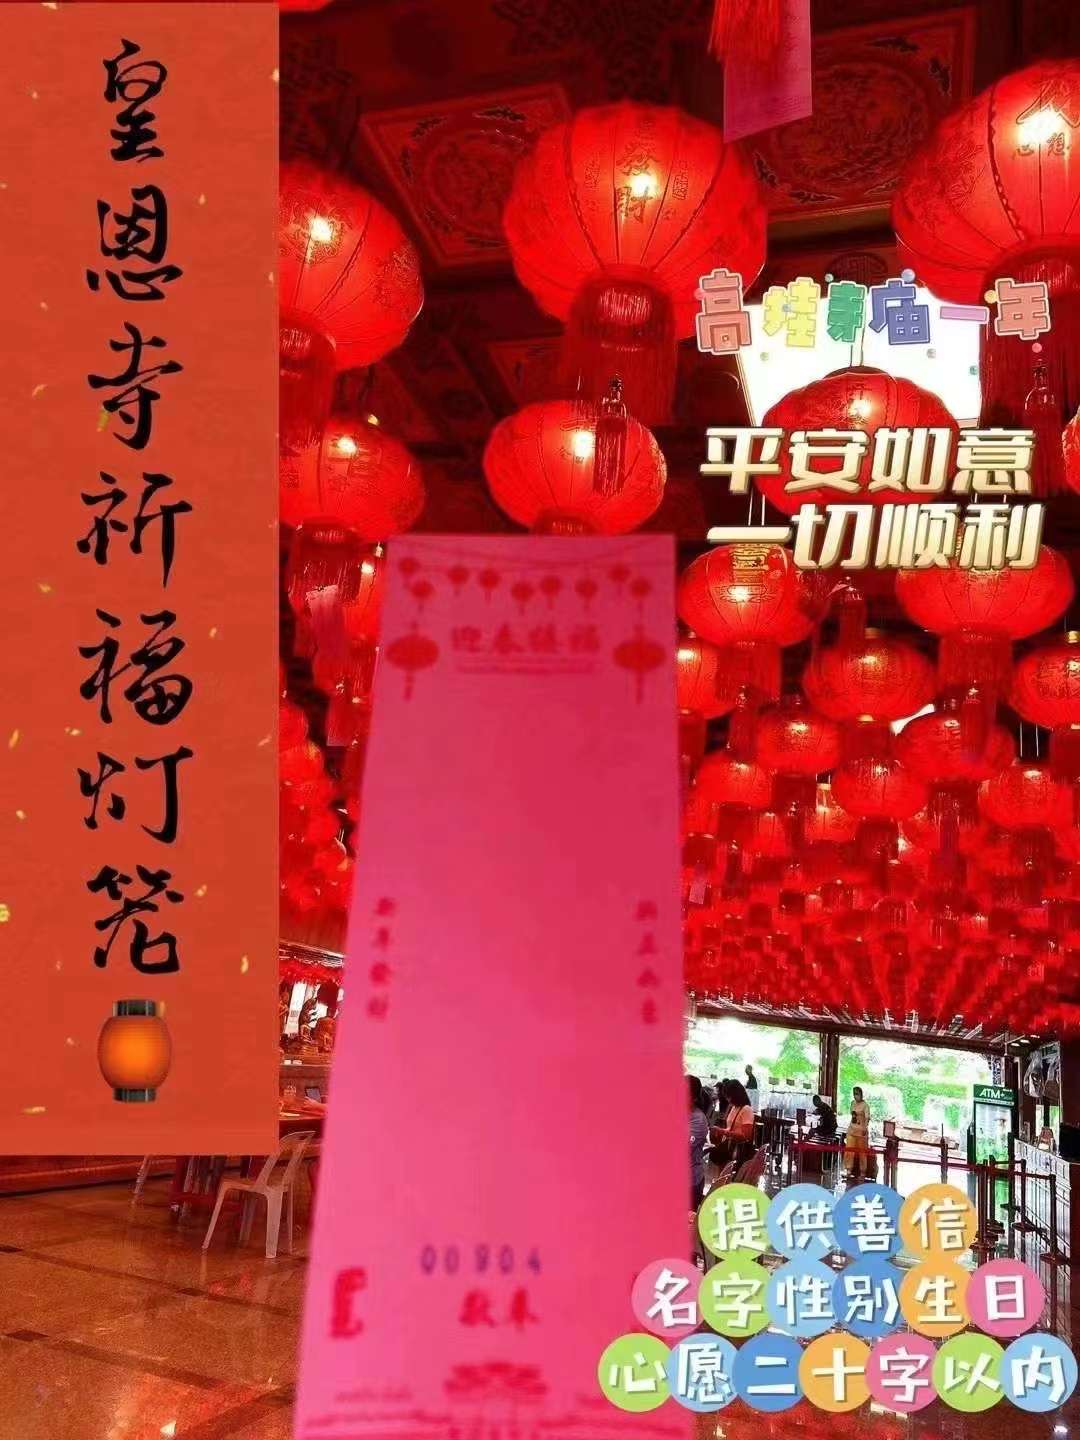 皇恩寺祈福灯笼
發財
高挂寺庙一年
平安如意
一切顺利
迎春接福
新年發财
00904
敬奉
ATM+
提供善信
名字性别生日
心愿二十字以内